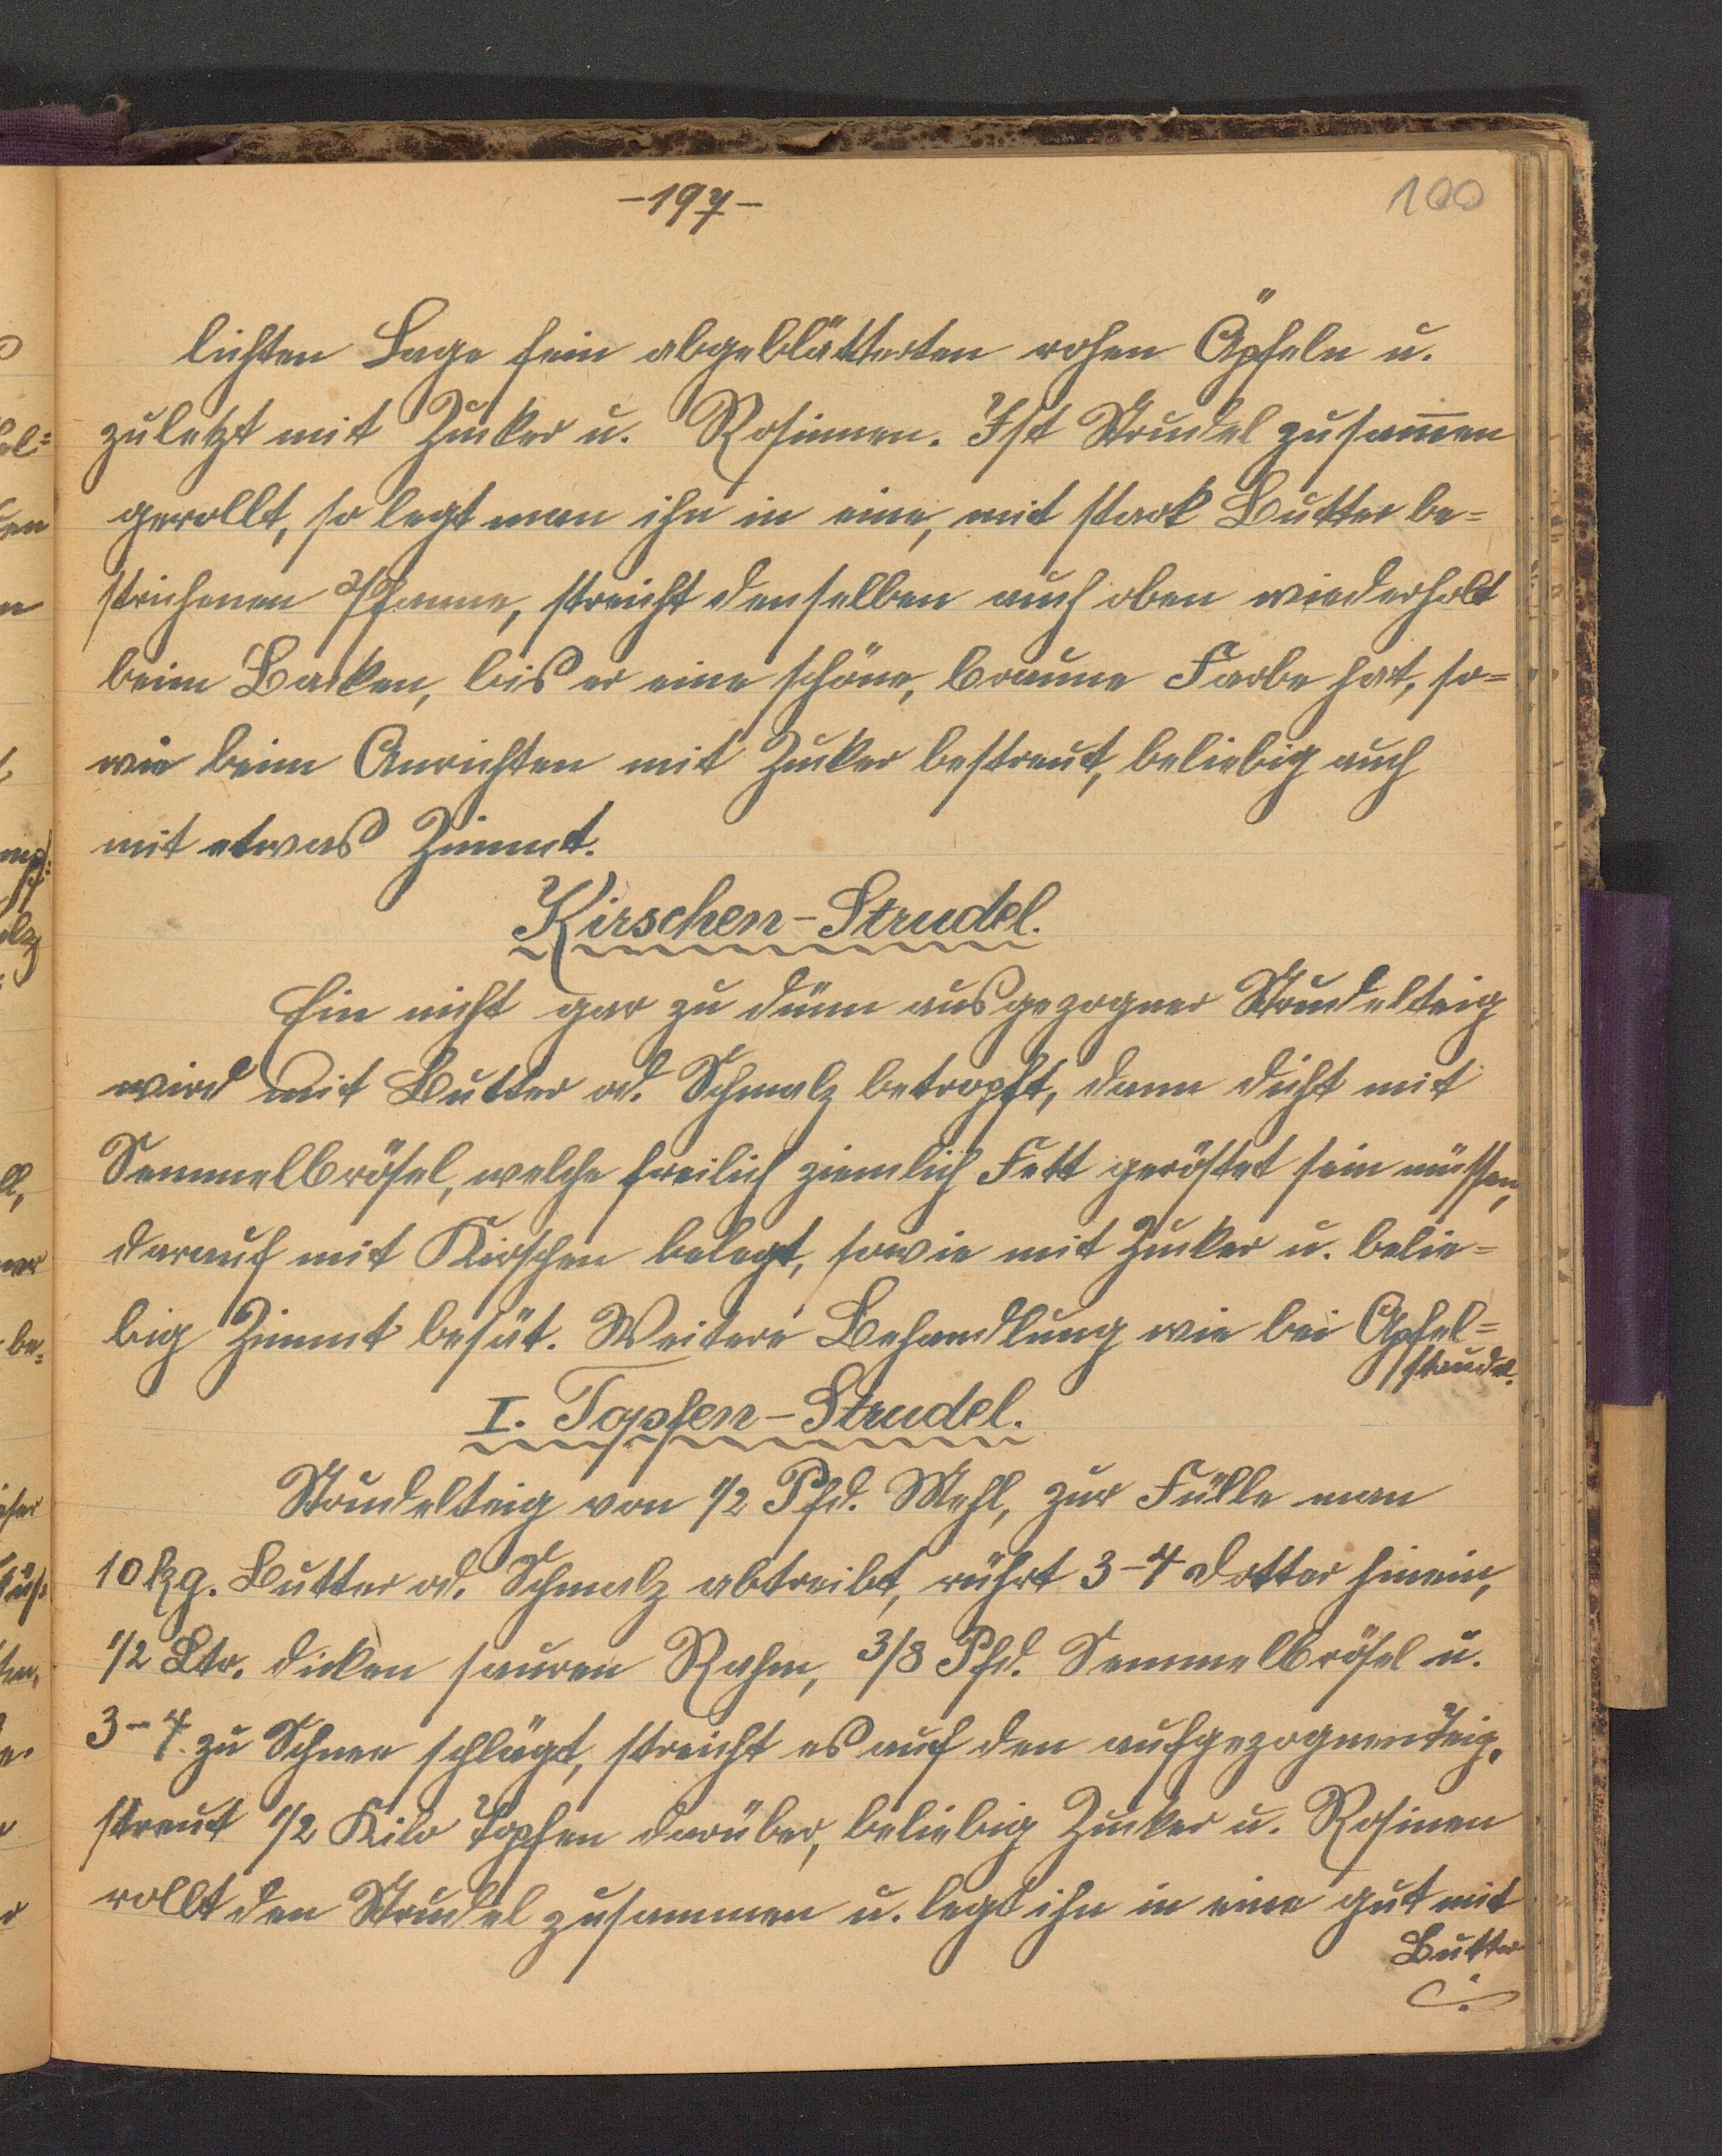 -197-
100
lichten Lage fein abgeblätterten rohen Äpfeln u.
zuletzt mit Zucker u. Rosinnen. Ist Strudel zusam̄en
gerollt, so legt man ihn in eine, mit stark Butter be=
strichenen Pfanne, streicht denselben auch oben wiederholt
beim Backen, bis er eine schöne, braune Farbe hat, so=
wie beim Anrichten mit Zucker bestreut, beliebig auch
mit etwas Zimmt.
Kirschen-Strudel.
Ein nicht gar zu dünn ausgezogner Strudelteig
wird mit Butter od. Schmalz betropft, dann dicht mit
Semmelbrösel, welche freilich ziemlich Fett geröstet sein müssen,
darauf mit Kirschen belegt, sowie mit Zucker u. belie=
big Zimmt besät. Weitere Behandlung wie bei Apfel=
strudel.
I. Topfen-Strudel.
Strudelteig von 1/2 Pfd. Mehl, zur Fülle man
10 kg. Butter od. Schmalz abtreibt, rührt 3-4 Dotter hinein,
1/2 Ltr. dicken sauren Rahm, 3/8 Pfd. Semmelbrösel u.
3-4 zu Schnee schlägt, streicht es auf den aufgezognen Teig,
streut 1/2 Kilo Topfen darüber, beliebig Zucker u. Rosinen
rollt den Strudel zusammen u. legt ihn in eine gut mit
Butter